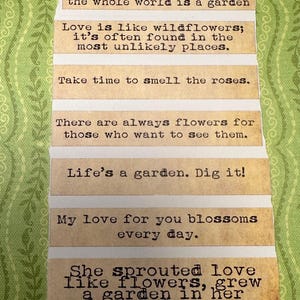 the whole world is a garden
Love is like wildflowers;
it's often found in the
most unlikely places.
Take time to smell the roses.
There are always flowers for
those who want to see them.
Life's a garden. Dig it!
My love for you blossoms
every day.
She sprouted love
like flowers, grew
a garden in her